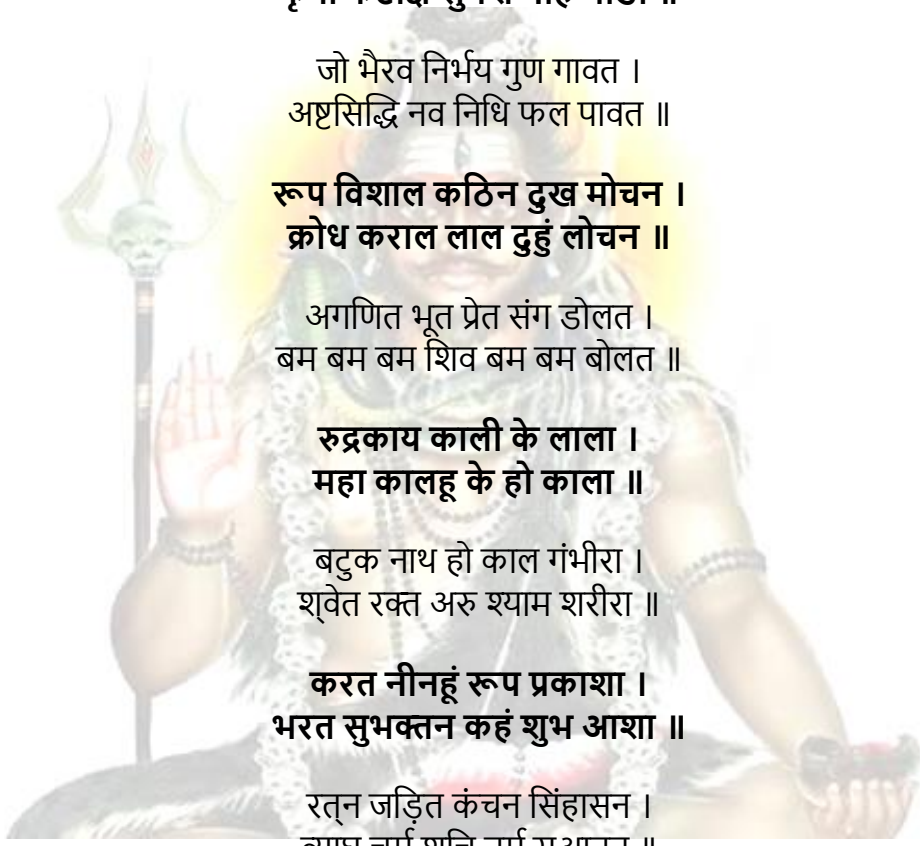 जो भैरव निर्भय गुण गावत ।
अष्टसिद्धि नव निधि फल पावत ॥
रूप विशाल कठिन दुख मोचन ।
क्रोध कराल लाल दुहुं लोचन ॥
अगणित भूत प्रेत संग डोलत ।
बम बम बम शिव बम बम बोलत ॥
रुद्रकाय काली के लाला ।
महा कालहू के हो काला ॥
बटुक नाथ हो काल गंभीरा ।
श्‍वेत रक्त अरु श्याम शरीरा ॥
करत नीनहूं रूप प्रकाशा ।
भरत सुभक्तन कहं शुभ आशा ॥
रत्‍न जड़ित कंचन सिंहासन ।